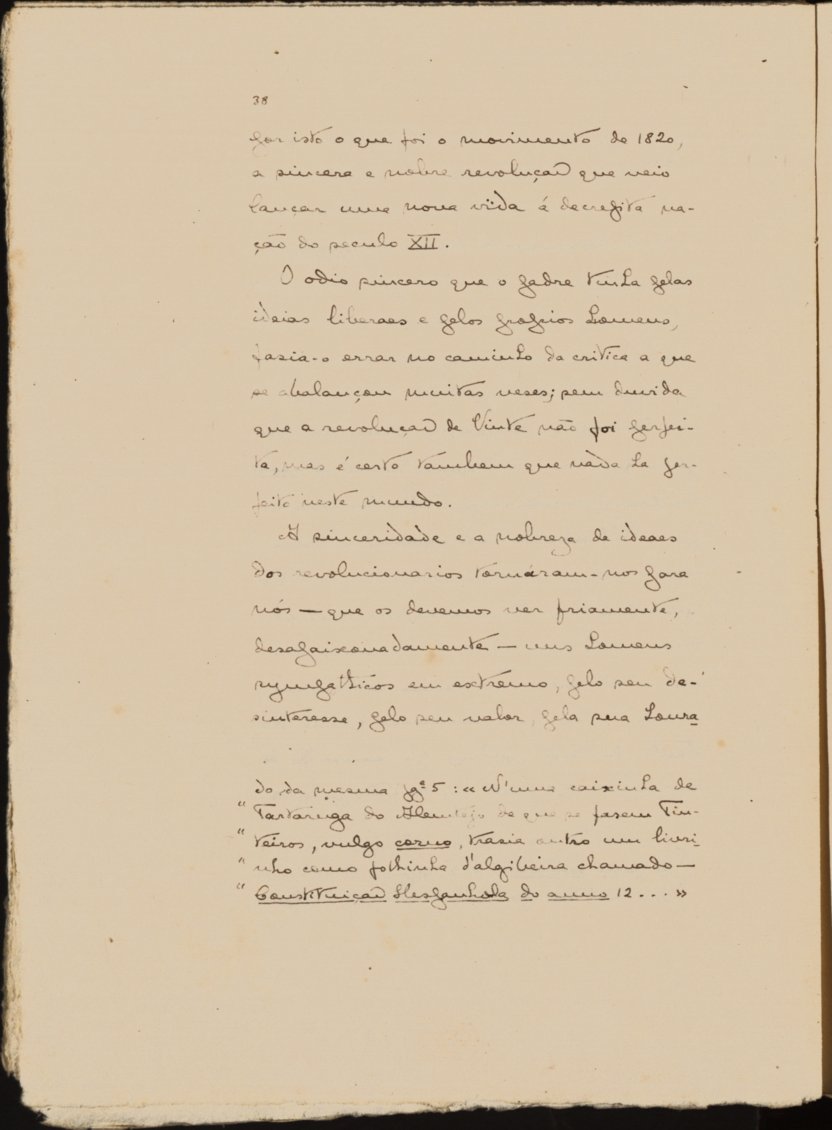 38
por isto o que foi o movimento de 1820,
a sincera e nobre revolução que veio
lançar uma nova vida á decrepita na-
ção do seculo XII.
O odio sincero que o padre tinha pelas
ideias liberaes e pelos proprios homens,
fasia-o errar no caminho da critica a que
se abalançou muitas veses; sem duvida
que a revolução de Vinte não foi perfei-
ta, mas é certo tambem que nada ha per-
feito neste mundo.
A sinceridade e a nobreza de ideaes
dos revolucionarios tornáram-nos para
nós — que os devemos ver friamente,
desapaixonadamente — uns homens
sympathicos em extremo, pelo seu de-
sinteresse, pelo seu valor, pela sua honra
do da mesma pg.ª 5: « N'uma caixinha de
" Tartaruga do Alemtejo de que se fasem Tin-
" teiros, vulgo corno, trasia outro um livri-
" nho como folhinha d'algibeira chamado —
" Constituição Hespanhola do anno 12 ... »